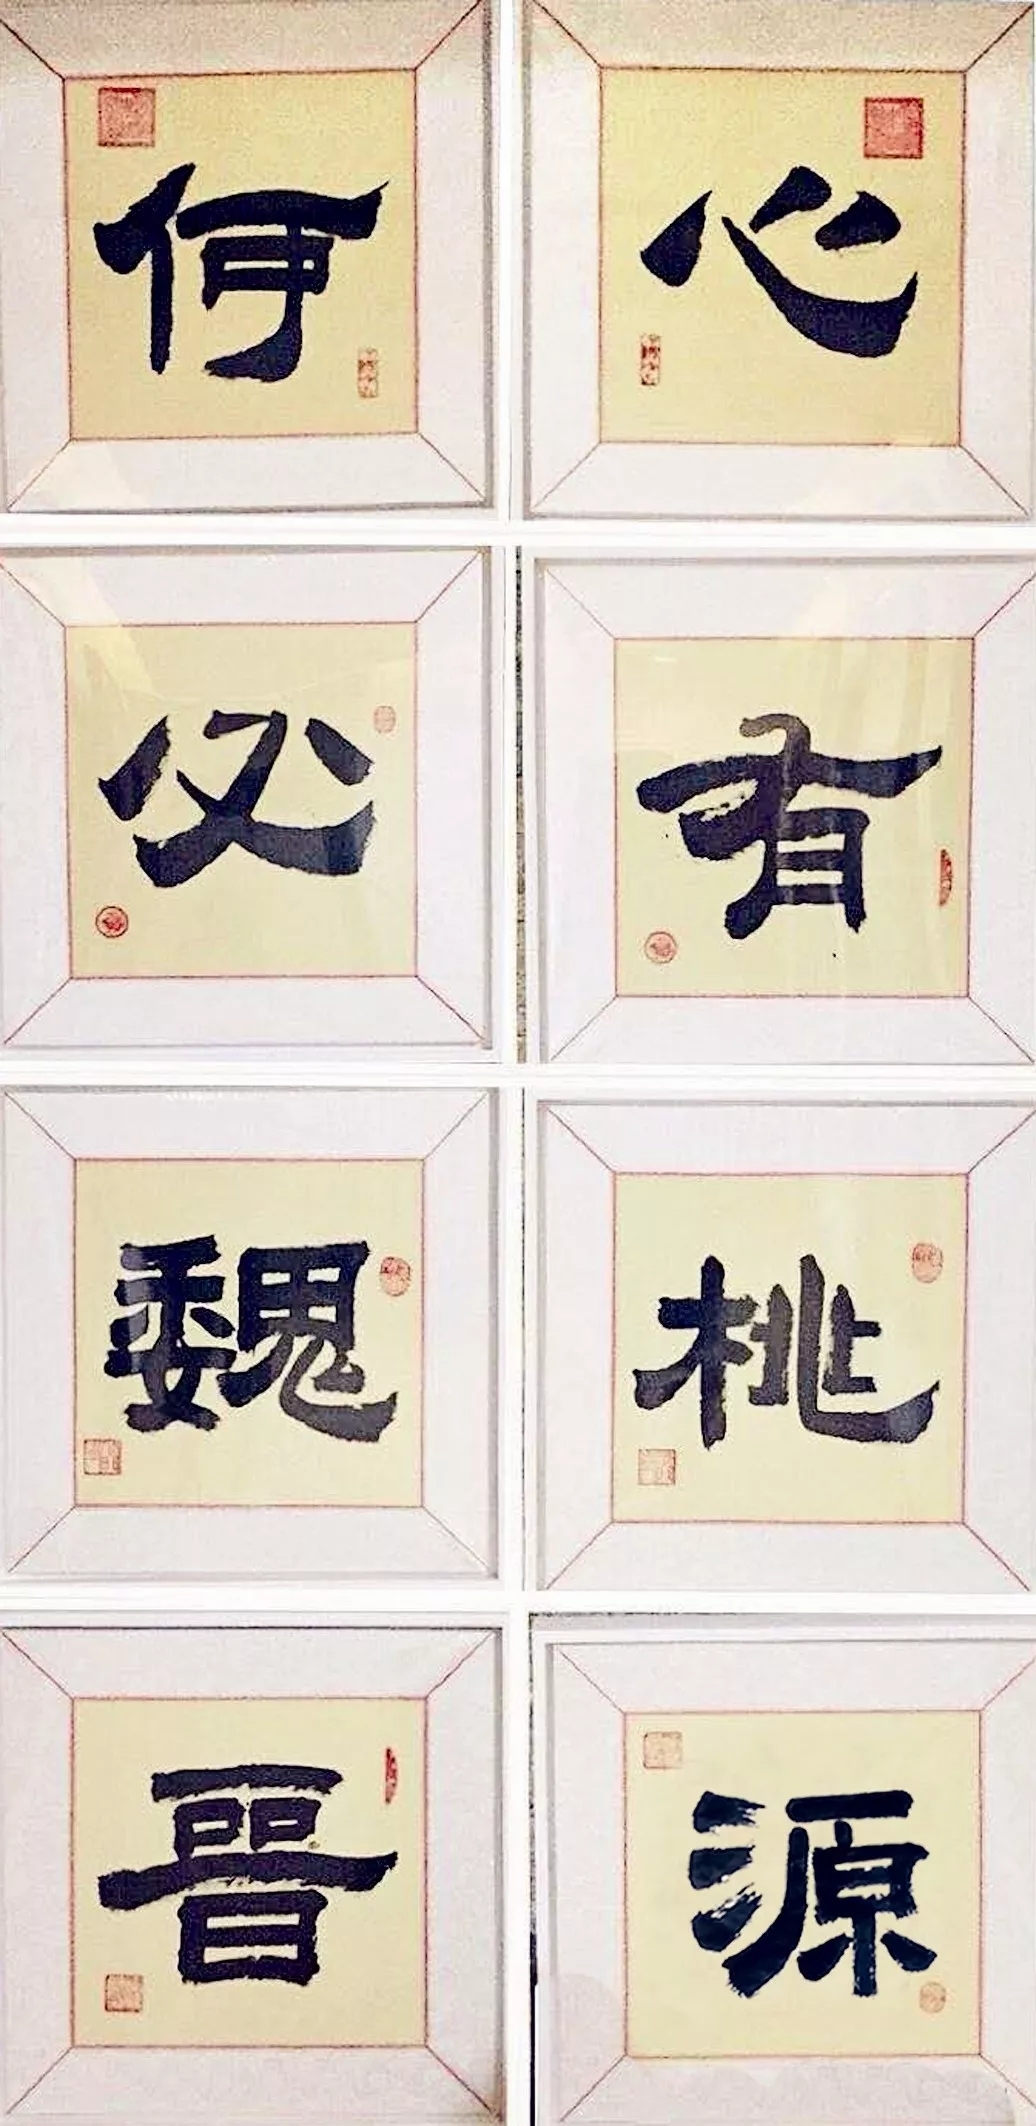 心有桃源
何必魏晋